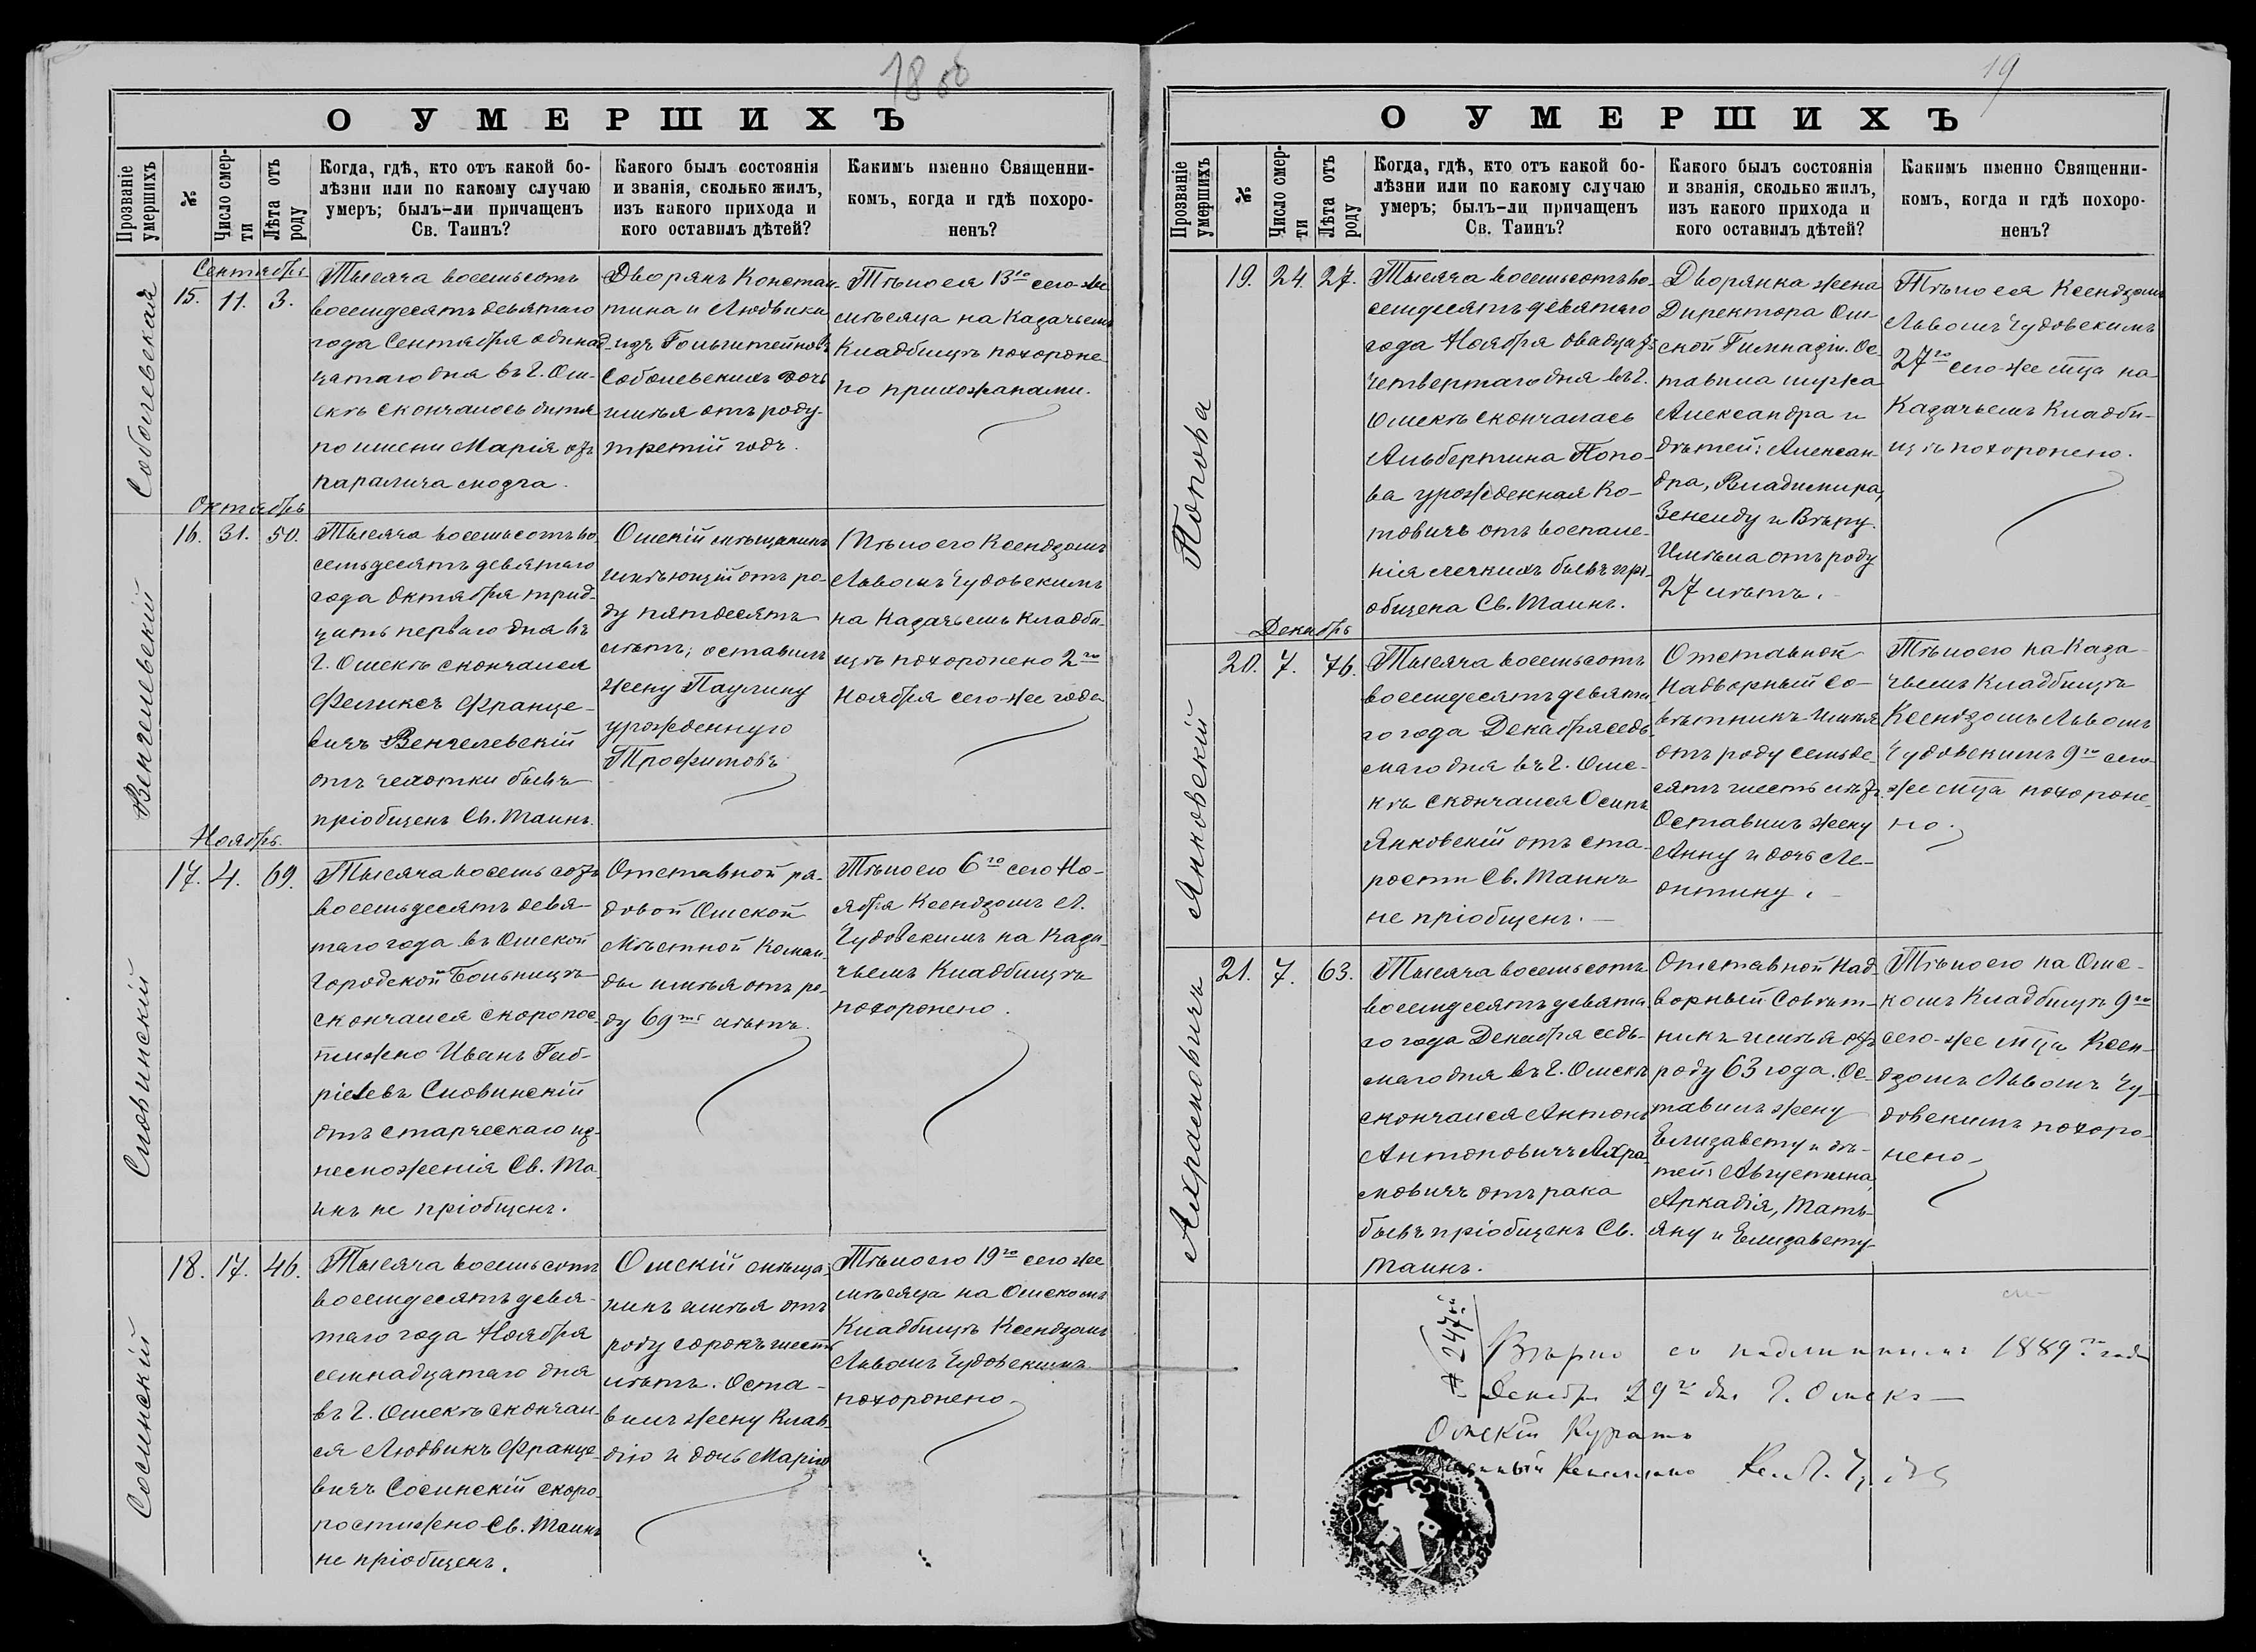 18 об
О УМЕРШИХЪ
Прозваніе умершихъ
№
Число смерти
Лѣта отъ роду
Когда, гдѣ, кто отъ какой бо-
лѣзни или по какому случаю
умеръ; былъ-ли причащенъ
Св. Таинъ?
Какого былъ состоянія
и званія, сколько жилъ,
изъ какого прихода и
кого оставилъ дѣтей?
Какимъ именно Священни-
комъ, когда и гдѣ похоро-
ненъ?
Соболевская
Сентябрь
15. 11. 3.
Тысяча восемьсотъ
восемдесятъ девятаго
года Сентября одинад-
цатаго дня въ г. Ом-
скѣ скончалось дитя
по имени Марія отъ
паралича мозга.
Дворянъ Констан-
тина и Людвики
изъ Гольштейновъ
Соболевскихъ дочь
имѣя отъ роду
третій годъ.
Тѣло ея 13го сего-же
мѣсяца на Казачьемъ
Кладбищѣ похороне-
но прихожанами.
Венгельвскій
Октябрь
16. 31. 50.
Тысяча восемьсотъ во
семьдесятъ девятаго
года Октября трид-
цать перваго дня въ
г. Омскѣ скончался
Феликсъ Францe-
вичъ Венгелевскій
отъ чахотки бывъ
пріобщенъ Св. Таинъ.
Омскій мѣщанинъ
имѣющій отъ ро-
ду пятдесятъ
лѣтъ; оставилъ
жену Паулину
урожденную
Трофимовъ
Тѣло его Ксендзомъ
Львомъ Чудовскимъ
на Казачьемъ Кладби-
щѣ похоронено 2го
Ноября сего-же года
Словинскій
Ноябрь.
17. 4. 69.
Тысяча восемь сотъ
восемьдесятъ девя-
таго года въ Омской
Городской Больницѣ
скончался скоропос-
тижно Иванъ Габ-
ріелевъ Словинскій
отъ старческаго из-
неможенія Св. Та-
инъ не пріобщенъ.
Отставной ря-
довой Омской
Мѣстной Коман-
ды имѣя отъ ро-
ду 69ть лѣтъ.
Тѣло его 6го сего Но-
ября Ксендзомъ Л.
Чудовскимъ на Каза-
чьемъ Кладбищѣ
похоронено.
Сосинскій
18. 17. 46.
Тысяча восемьсотъ
восемдесятъ девя-
таго года Ноября
семнадцатаго дня
въ г. Омскѣ скончал-
ся Людвикъ Францe-
вичъ Сосинскій скоро-
постижно Св. Таинъ
не пріобщенъ.
Омскій мѣща-
нинъ имѣя отъ
роду сорокъ шесть
лѣтъ. Оста-
вилъ жену Клав-
дію и дочь Марію
Тѣло его 19го сего же
мѣсяца на Омскомъ
Кладбищѣ Ксендзомъ
Львомъ Чудовскимъ
похоронено.
19
О УМЕРШИХЪ
Прозваніе умершихъ
№
Число смерти
Лѣта отъ роду
Когда, гдѣ, кто отъ какой бо-
лѣзни или по какому случаю
умеръ; былъ-ли причащенъ
Св. Таинъ?
Какого былъ состоянія
и званія, сколько жилъ,
изъ какого прихода и
кого оставилъ дѣтей?
Какимъ именно Священни-
комъ, когда и гдѣ похоро-
ненъ?
Попова
19. 24. 27.
Тысяча восемьсотъ во-
семдесятъ девятаго
года Ноября двадцать
четвертаго дня въ г.
Омскѣ скончалась
Альбертина Попо-
ва урожденная Ко-
товичъ отъ воспале-
нія легкихъ бывъ прі-
общена Св. Таинъ.
Дворянка жена
Директора Ом-
ской Гимназіи. Ос-
тавила мужа
Александра и
дѣтей: Алексан-
дра, Владимира,
Зенеиду и Вѣру.
Имѣла отъ роду
27 лѣтъ.
Тѣло ея Ксендзомъ
Львомъ Чудовскимъ
27го сего-же мца на
Казачьемъ Кладби-
щѣ похоронено.
Янковскій
Декабрь
20. 7. 76.
Тысяча восемьсотъ
восемдесятъ девята-
го года Декабря седь-
маго дня въ г. Омс-
кѣ скончался Осипъ
Янковскій отъ ста-
рости Св. Таинъ
не пріобщенъ.
Отставной
Надворный Со-
вѣтникъ имѣя
отъ роду семьде-
сятъ шесть лѣтъ.
Оставилъ жену
Анну и дочь Ле-
онтину.
Тѣло его на Каза-
чьемъ Кладбищѣ
Ксендзомъ Львомъ
Чудовскимъ 9го сего-
же мца похороне-
но.
Ахрамовичъ
21. 7. 63.
Тысяча восемьсотъ
восемдесятъ девята-
го года Декабря седь-
маго дня въ г. Омскѣ
скончался Антонъ
Антоновичъ Ахра-
мовичъ отъ рака
бывъ пріобщенъ Св.
Таинъ.
Отставной Над-
ворный Совѣт-
никъ имѣя отъ
роду 63 года. Ос-
тавилъ жену
Елизавету и дѣ-
тей: Августина,
Аркадія, Татъ-
яну и Елизавету
Тѣло его на Омс-
комъ Кладбищѣ 9го
сего-же мца Ксен-
дзомъ Львомъ Чу-
довскимъ похоро-
нено.
№ 247
Вѣрно съ подлиннымъ 1889го года
Декабря 29го дня г. Омскъ
Омскій Куратъ